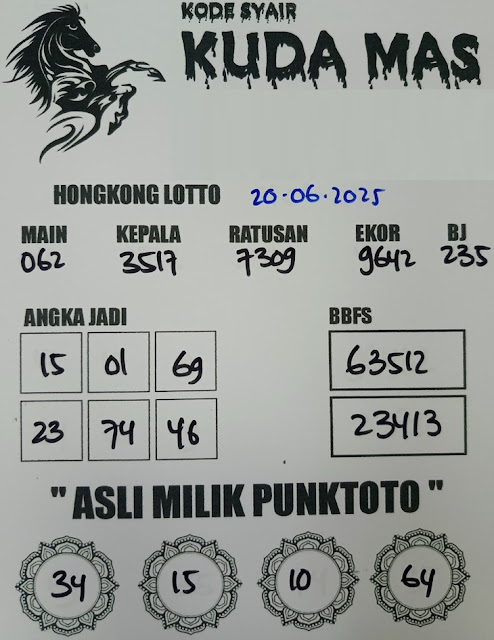 KODE SYAIR
KUDA MAS
HONGKONG LOTTO 20-06-2025
MAIN KEPALA RATUSAN EKOR BJ
062 3517 7309 9642 235
ANGKA JADI BBFS
15 01 69 63512
23 74 46 23413
" ASLI MILIK PUNKTOTO "
34 15 10 64